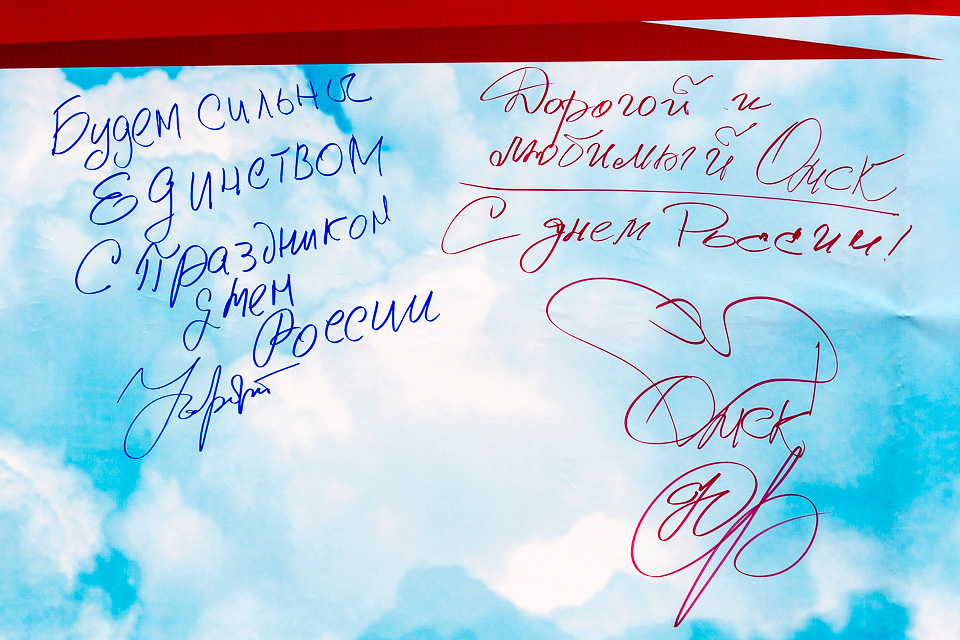 Будем сильны
Единством
С Праздником
днем
России
Дорогой и
любимый Омск
С днем России!
Омск